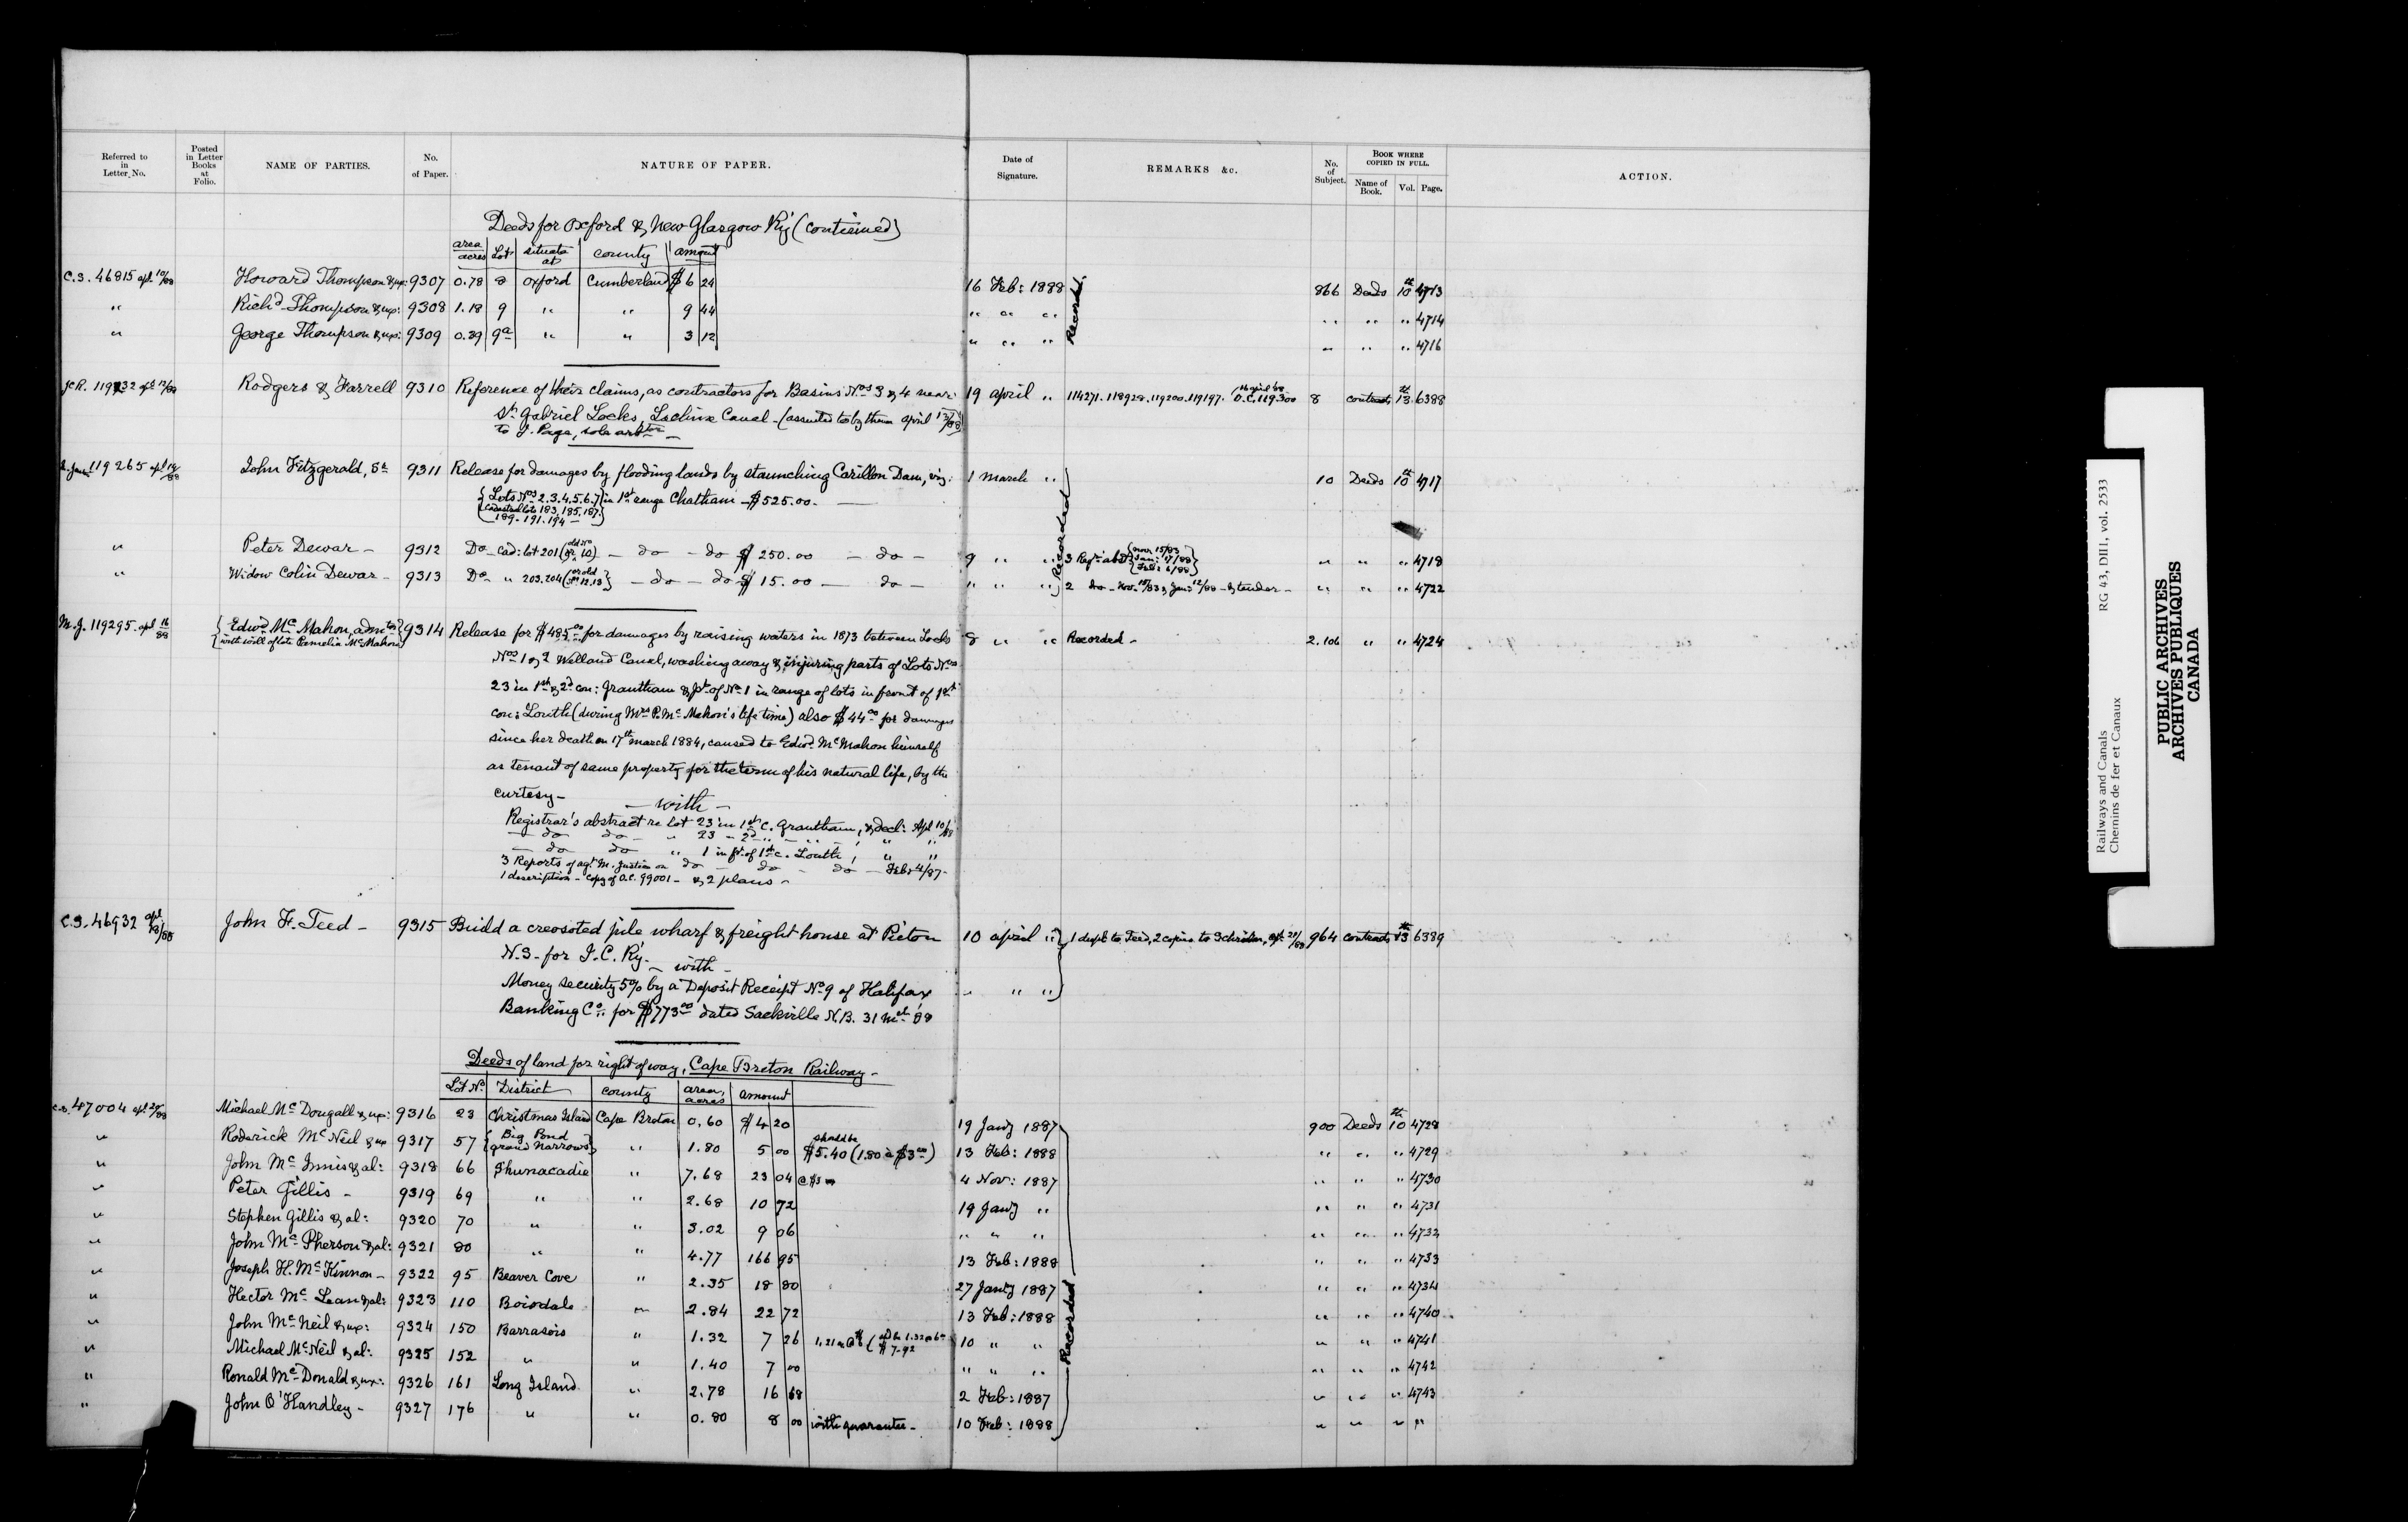 Referred to in Letter No. | Posted in Letter Books at Folio. | NAME OF PARTIES. | No. of Paper. | NATURE OF PAPER. | Date of Signature. | REMARKS &c. | No. of Subject. | BOOK WHERE COPIED IN FULL. Name of Book. Vol. Page. | ACTION.
Deeds for Oxford & New Glasgow Ry (continued)
area acres | Lot | situate at | county | amount
C.S. 46815 apl 10/88 Howard Thompson & ux: 9307 0.78 8 Oxford Cumberland $6 24 16 Feb: 1888 Recorded. 866 Deeds 10th 4713
" Richd Thompson & ux: 9308 1.18 9 " " 9 44 " " " " " " 4714
" George Thompson & ux: 9309 0.39 9a " " 3 12 " " " " " " 4716
Rodgers & Farrell 9310 Reference of their claims, as contractors for Basins Nos 3 & 4 near 19 April " 114271. 118928. 119200. 119197. O.C. 119300 8 contracts 13th 6388
St Gabriel Locks, Lachine Canal - (assented to by them April 12/88)
to J. Page, sole arbtor -
119265 John Fitzgerald, Sr 9311 Release for damages by flooding lands by staunching Carillon Dam, viz. 1 March " 10 Deeds 10th 4717
{Lots Nos 2.3.4.5.6.7 in 1st range Chatham - $525.00 -
cadastral lots 183, 185, 187.
189. 191. 194 -
" Peter Dewar - 9312 Do - Cad: lot 201 (old No 10) - do - do $250.00 - do - 9 " " Recorded 3 Regrs abst {Nov. 15/83 Jan: 17/88 Feb: 6/88} " " " 4718
" Widow Colin Dewar - 9313 Do " 203. 204 (or old 12.13) - do - do $15.00 - do - " " " 2 do - Nov. 15/83 & Jan: 12/88 - & tender - " " " 4722
M.J. 119295. apl 16/88 {Edwd McMahon, admtor with will of late Pamelia McMahon} 9314 Release for $485.00 for damages by raising waters in 1873 between Locks 8 " " Recorded - 2.106 " " 4724
Nos 1 & 2 Welland Canal, washing away & injuring parts of Lots Nos
23 in 1st & 2d con: Grantham & pt of No 1 in range of lots in front of 1st
con: Louth (during Mrs P. McMahon's life time) also $44.00 for damages
since her death on 17th March 1884, caused to Edwd McMahon himself
as tenant of same property for the term of his natural life, by the
curtesy -
- with -
Registrar's abstract re Lot 23 in 1st C. Grantham, & decl: Apl 10/88
- do do - " 23 - 2d " - " - , " "
- do do " 1 in ft of 1st c. Louth, " "
3 Reports of agt M. Justion on do - do - do - Feb: 4/87 -
1 description - Copy of O.C. 99001 - & 2 plans -
C.S. 46932 apl 18/88 John F. Teed - 9315 Build a creosoted pile wharf & freight house at Pictou 10 April " 1 dupl to Teed, 2 copies to Schreiber, apl 21/88 964 contracts 13th 6389
N.S. for I.C. Ry. - with -
Money security 5% by a Deposit Receipt No 9 of Halifax " " "
Banking Co: for $773.00 dated Sackville N.B. 31 Mch '88
Deeds of land for right of way, Cape Breton Railway -
Lot No | District | county | area, acres | amount
C.S. 47004 apl 20/88 Michael McDougall & ux: 9316 23 Christmas Island Cape Breton 0.60 $4 20 19 Jany 1887 900 Deeds 10th 4728
" Roderick McNeil & ux 9317 57 {Big Pond Grand Narrows} " 1.80 5 00 should be $5.40 (1.80 à $3.00) 13 Feb: 1888 " " " 4729
" John McInnis & al: 9318 66 Shunacadie " 7.68 23 04 @ $3.00 4 Nov: 1887 " " " 4730
" Peter Gillis - 9319 69 " " 2.68 10 72 19 Jany " " " " 4731
" Stephen Gillis & al: 9320 70 " " 3.02 9 06 " " " " " " 4732
" John McPherson & al: 9321 80 " " 4.77 166 95 13 Feb: 1888 " " " 4733
" Joseph H. McKinnon - 9322 95 Beaver Cove " 2.35 18 80 27 Jany 1887 " " " 4734
" Hector McLean & al: 9323 110 Boisdale " 2.84 22 72 13 Feb: 1888 Recorded " " " 4740
" John McNeil & ux: 9324 150 Barrasois " 1.32 7 26 10 " " " " " 4741
" Michael McNeil & al: 9325 152 " " 1.40 7 00 " " " " " " 4742
" Ronald McDonald & ux: 9326 161 Long Island " 2.78 16 68 2 Feb: 1887 " " " 4743
" John O'Handley - 9327 176 " " 0.80 8 00 with guarantee - 10 Feb: 1888 " " " "
Railways and Canals
Chemins de fer et Canaux
RG 43, DIII, vol. 2533
PUBLIC ARCHIVES
ARCHIVES PUBLIQUES
CANADA